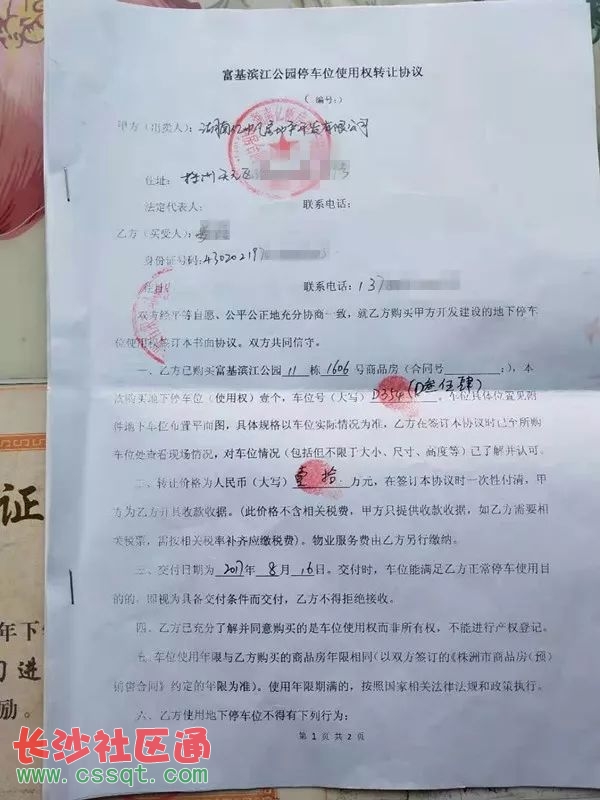 富基滨江公园停车位使用权转让协议
（ 编号：）
甲方（出卖人）：湖南亿中亿房地产开发有限公司
住址： 株洲天元区 号
法定代表人： 联系电话：
乙方（买受人）：
身份证号码：430202197
住址： 联系电话：137
双方经平等自愿、公平公正地充分协商一致，就乙方购买甲方开发建设的地下停车
位使用权签订本书面协议。双方共同信守。
一、乙方已购买富基滨江公园 11 栋 1606 号商品房（合同号 ：），本
次购买地下停车位（使用权）壹个，车位号（大写）D354（D叁伍肆）。车位具体位置见附
件地下车位布置平面图，具体规格以车位实际情况为准，乙方在签订本协议时已至所购
车位处查看现场情况，对车位情况（包括但不限于大小、尺寸、高度等）已了解并认可。
二、转让价格为人民币（大写）壹拾 万元，在签订本协议时一次性付清，甲
方为乙方开具收款收据。（此价格不含相关税费，甲方只提供收款收据，如乙方需要相
关税票，需按相关税率补齐应缴税费）。物业服务费由乙方另行缴纳。
三、交付日期为 2017年 8 月 16 日。交付时，车位能满足乙方正常停车使用目
的的，即视为具备交付条件而交付，乙方不得拒绝接收。
四、乙方已充分了解并同意购买的是车位使用权而非所有权，不能进行产权登记。
五、车位使用年限与乙方购买的商品房年限相同（以双方签订的《株洲市商品房（预）
销售合同》约定的年限为准）。使用年限期满的，按照国家相关法律法规和政策执行。
六、乙方使用地下停车位不得有下列行为：
第 1 页 共 2 页
证
年下
进
励。
长沙社区通
www.cssqt.com